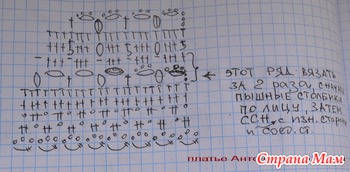 ЭТОТ РЯД ВЯЗАТЬ
ЗА 2 РАЗА, СНАЧ
ПЫШНЫЕ СТОЛБИКИ
ПО ЛИЦУ, ЗАТЕМ
ССН, С ИЗН. СТОРОН
И СОЕД. СТ
платье Анто
Страна Мам